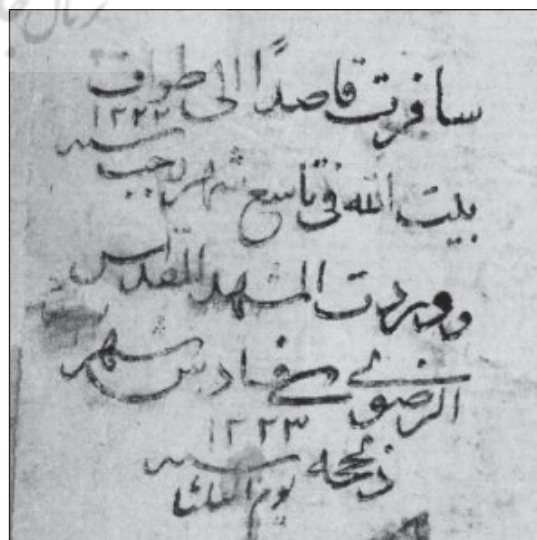 سافرت قاصدًا الى طواف
بيت الله فی تاسع شهر رجب سنه ۱۲۲۲
ووردت المشهد المقدس
الرضوی فی سادس شهر
ذیحجه سنه ۱۲۲۳
يوم الثلثا